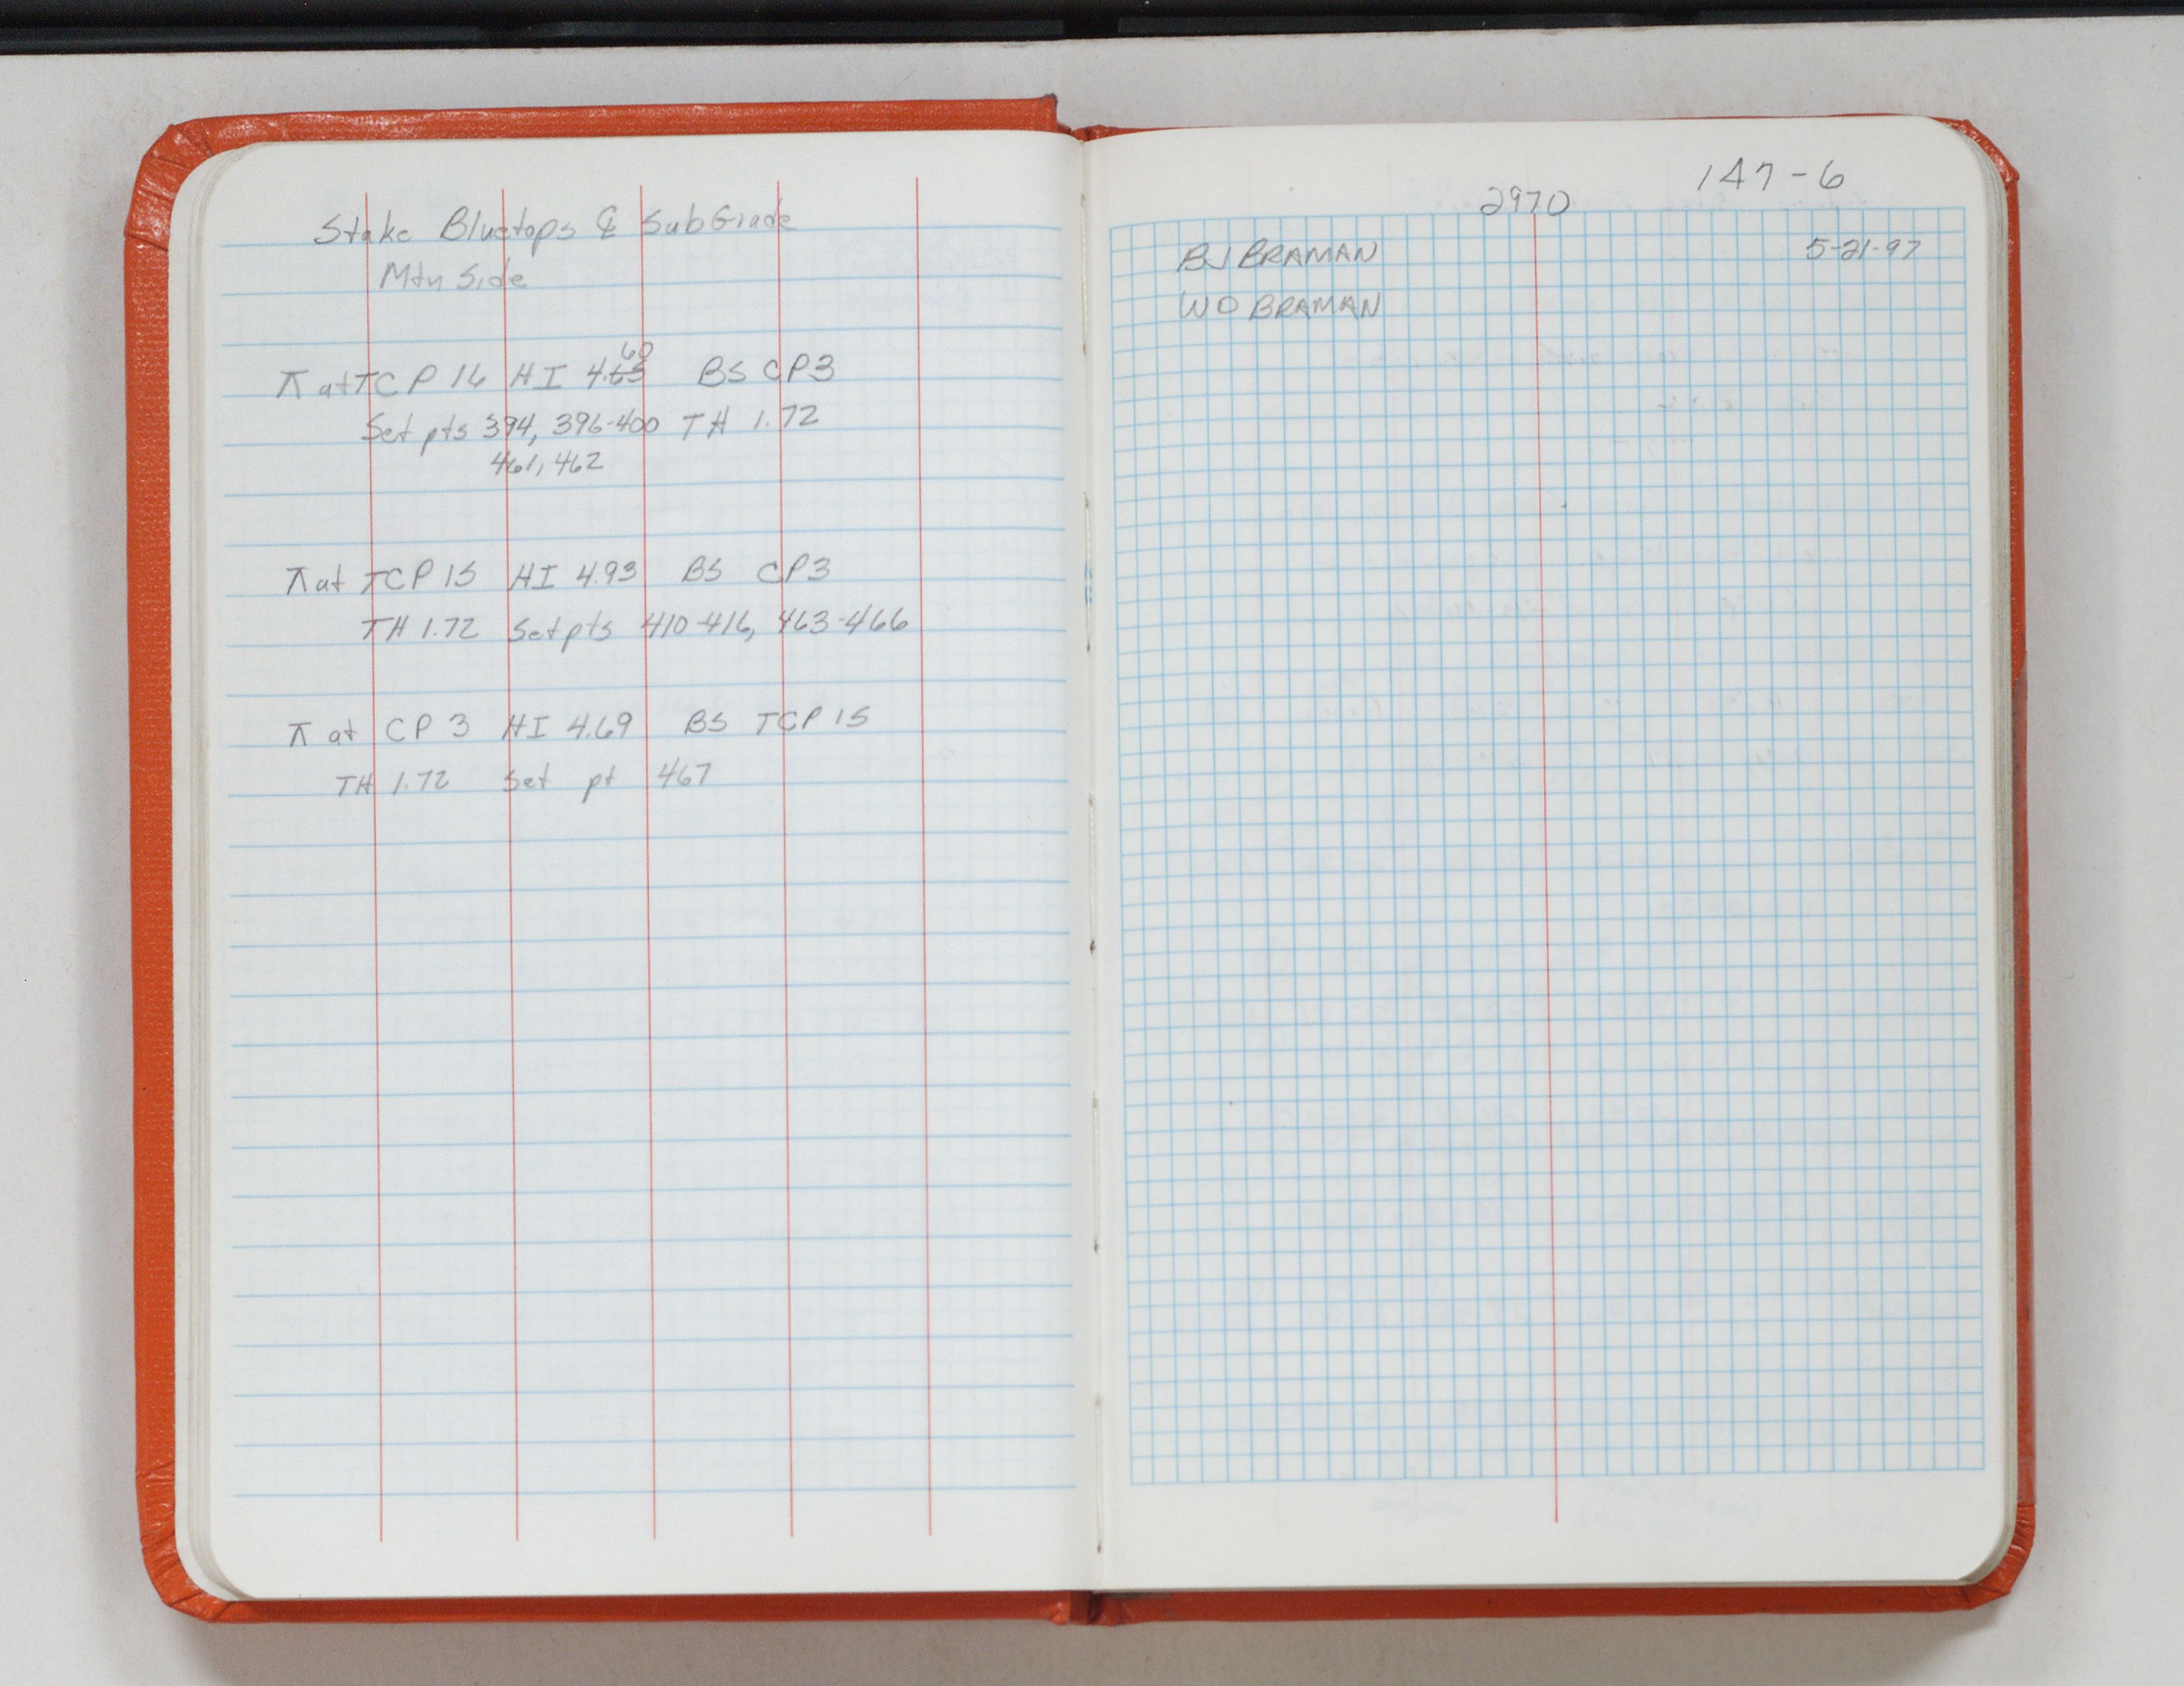 Stake Bluetops ℄ SubGrade
Mtn Side
⊼ at TCP 16 HI 4.63 60 BS CP3
Set pts 394, 396-400 TH 1.72
461, 462
⊼ at TCP 15 HI 4.93 BS CP3
TH 1.72 Set pts 410-416, 463-466
⊼ at CP 3 HI 4.69 BS TCP 15
TH 1.72 Set pt 467
147-6
2970
BJ BRAMAN 5-21-97
WD BRAMAN